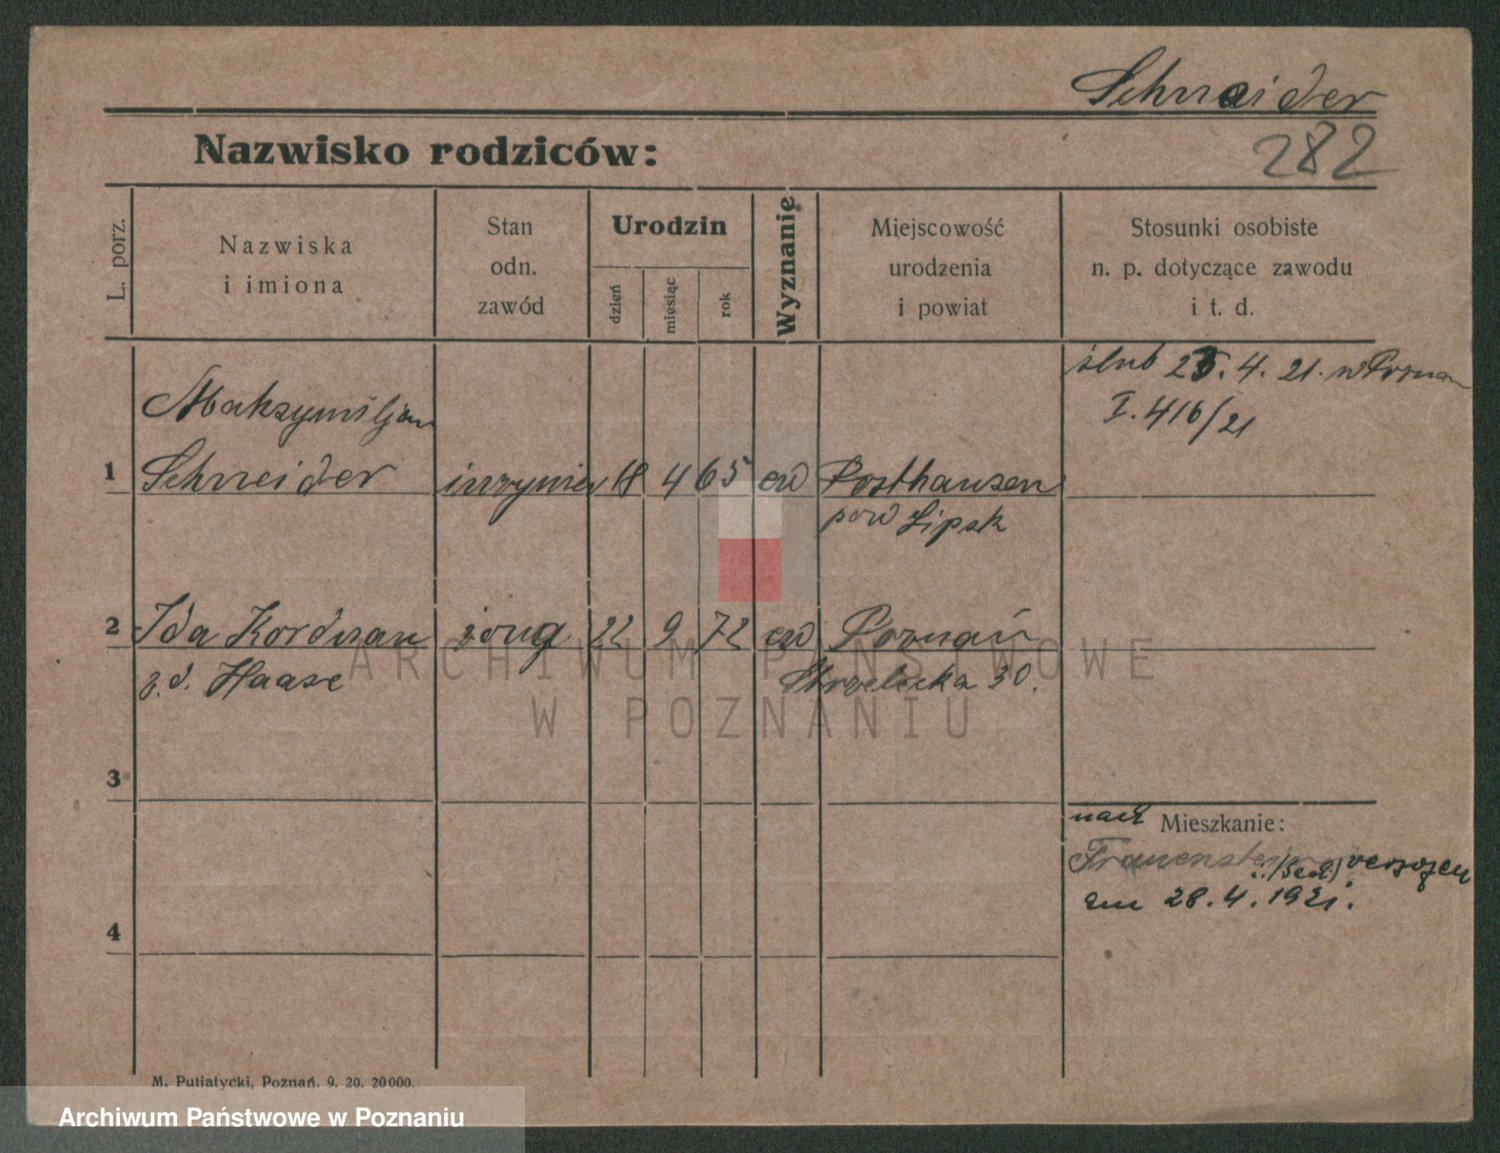 Schneider
Nazwisko rodziców:
282
L. porz.
Nazwiska
i imiona
Stan
odn.
zawód
Urodzin
dzień
miesiąc
rok
Wyznanię
Miejscowość
urodzenia
i powiat
Stosunki osobiste
n. p. dotyczące zawodu
i t. d.
ślub 25. 4. 21. w Poznan
I. 416/21
Maksymiljan
1 Schneider inzynier 18 4 65 ew Posthausen
pow Lipsk
2 Ida Korduan 22 9 72 ew Poznań
z. d. Haase Strzelecka 30.
3
nach Mieszkanie:
Frauenstein verzogen
am 28. 4. 1921.
4
M. Putiatycki, Poznań. 9. 20. 20000.
ARCHIWUM PAŃSTWOWE
W POZNANIU
Archiwum Państwowe w Poznaniu